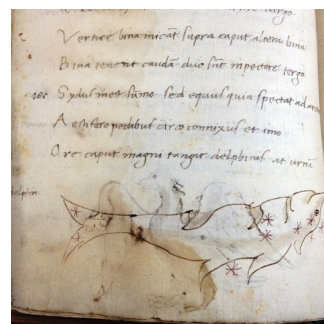 tergo.
Vertice bina micāt supra caput altera bina
Bina tenent caudā duo sūt in pectore tergo
Sydus inest sūmo sed equus quia spectat ad
A estifero pedibus circo connixus et imo
Ore caput magni tangit delphinus at urni
delphin